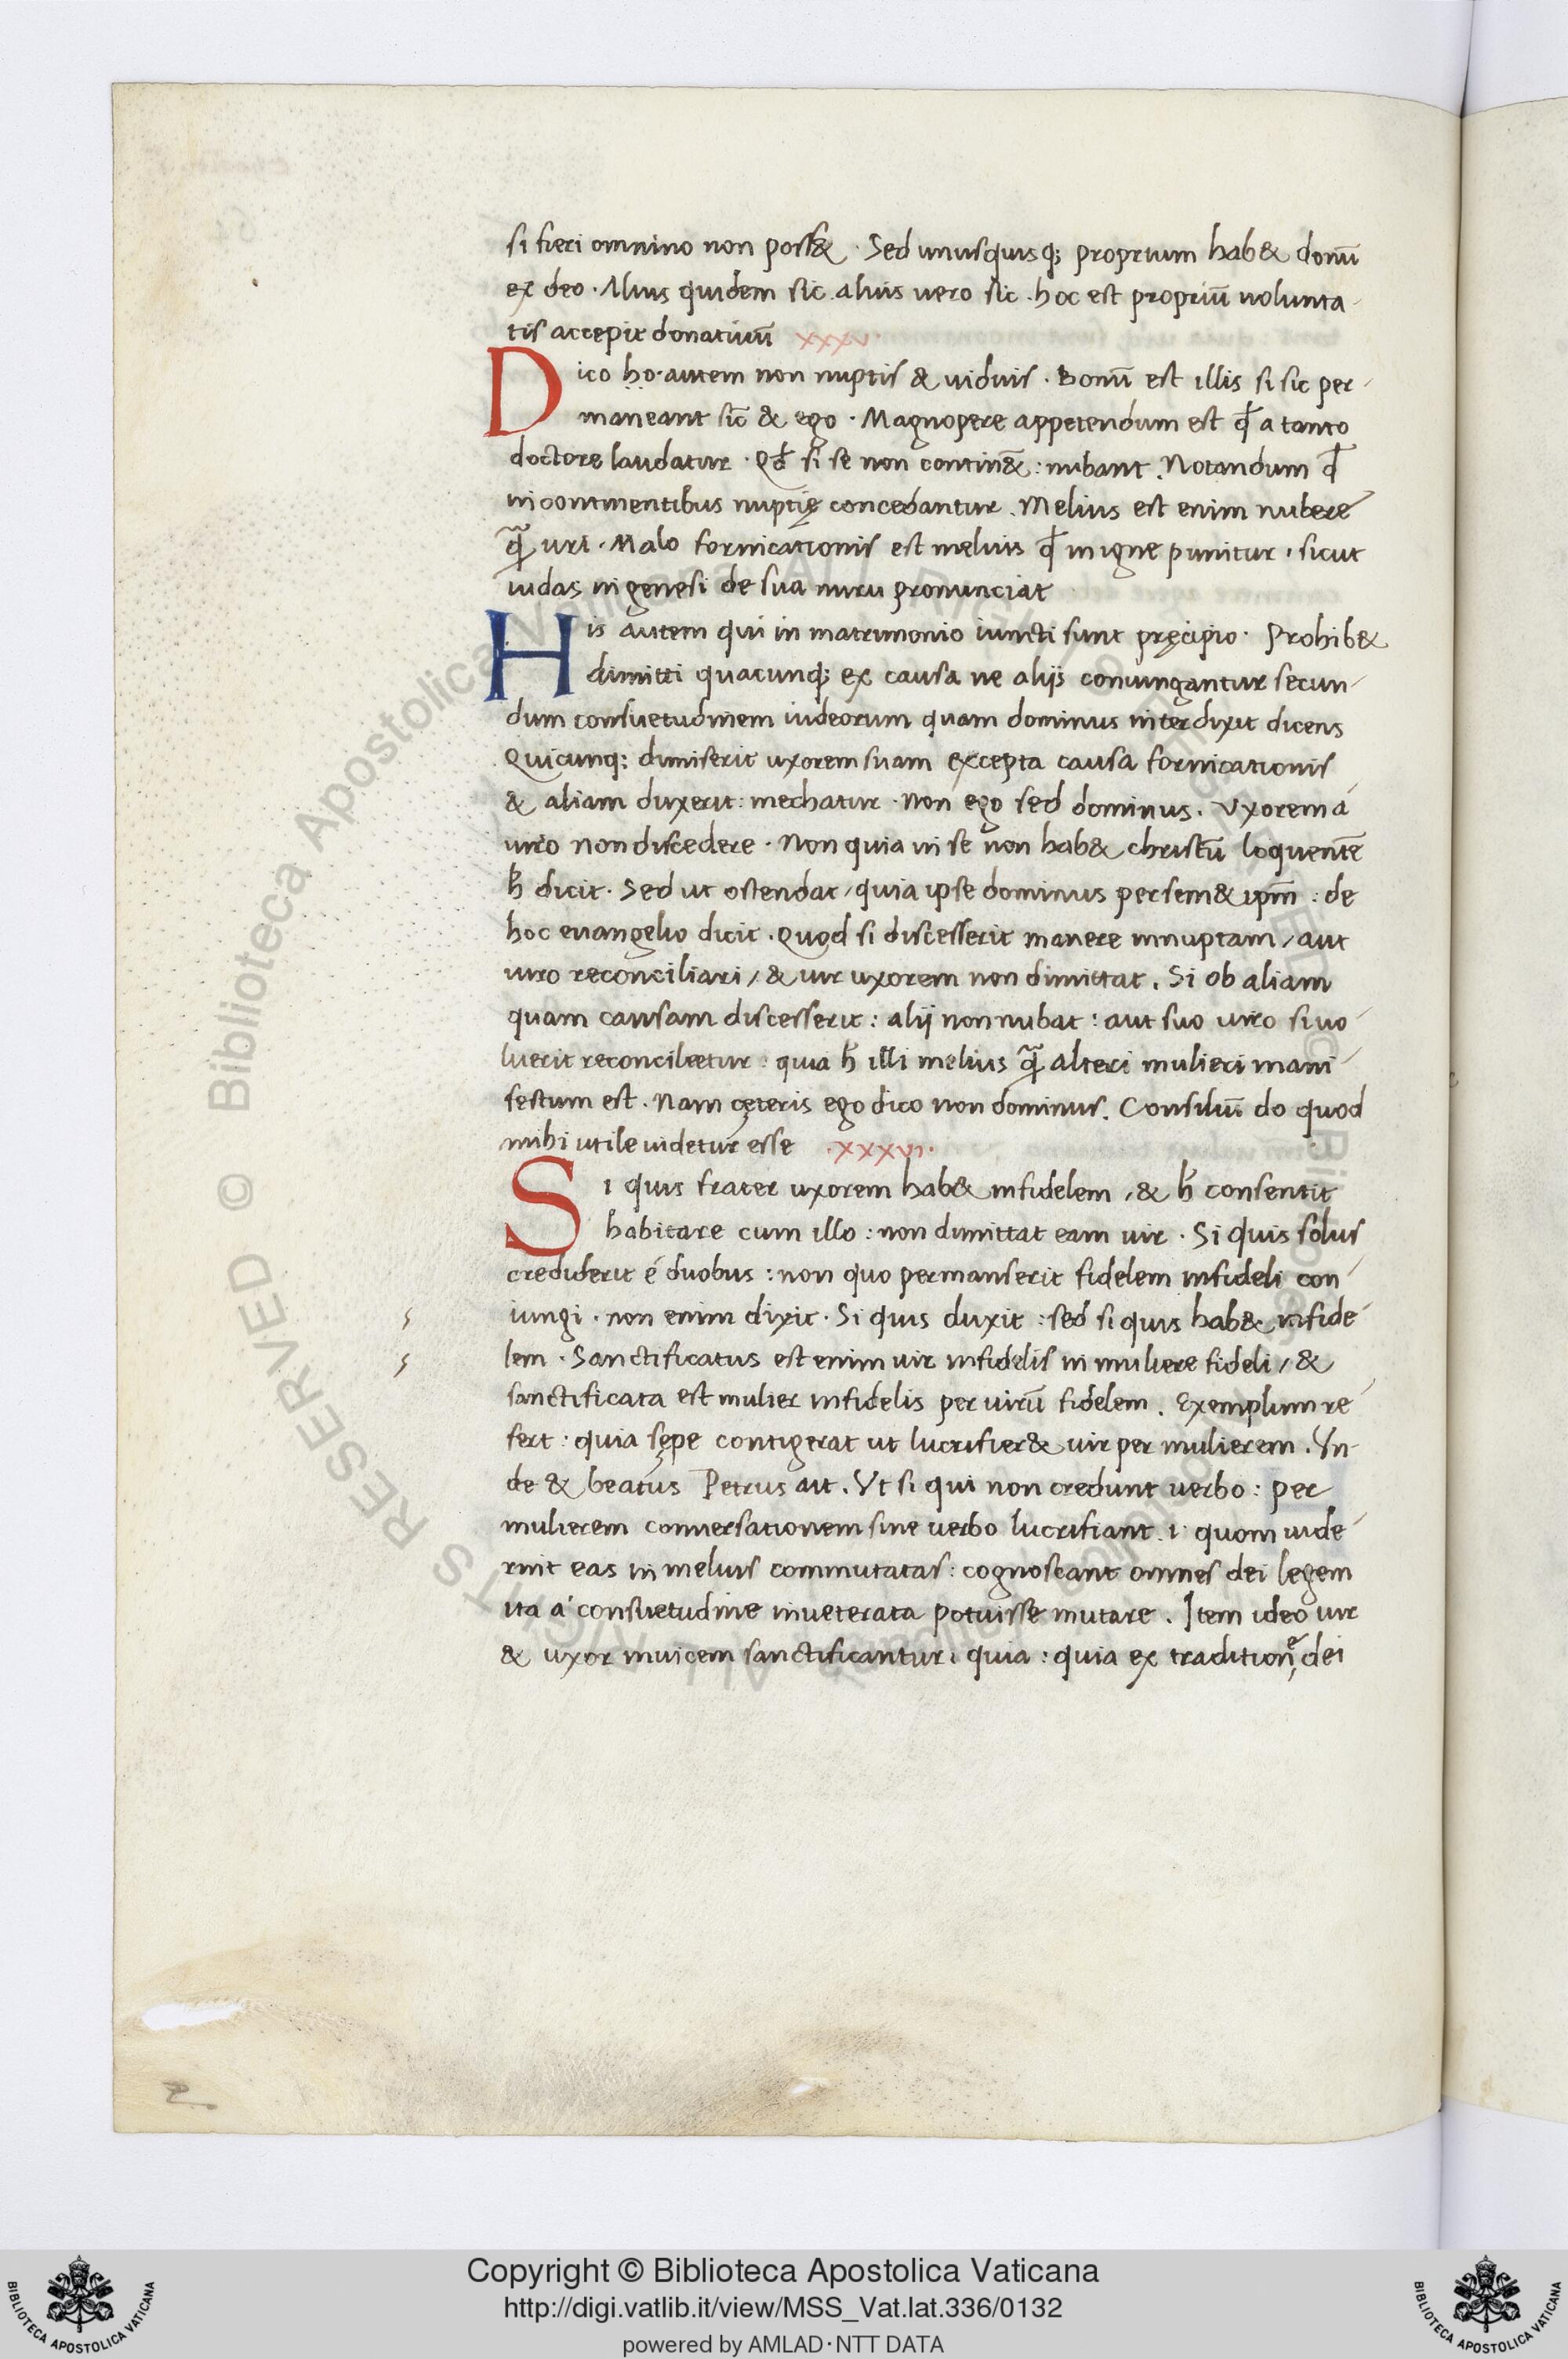 si fieri omnino non poss& · Sed unusquisq; proprium hab& donū
ex deo · Alius quidem sic · alius uero sic · hoc est propriū uolunta-
tis accepit donatiuū xxxv·
Dico ho· autem non nuptis & uiduis · Bonū est illis si sic per-
maneant sic̄ & ego · Magnopere appetendum est qđ a tanto
doctore laudatur · Qđ si se non contin&̄ : nubant . Notandum qđ
incontinentibus nuptię concedantur . Melius est enim nubere
quā uri · Malo fornicationis est melius qđ in igne punitur , sicut
iudas in genesi de sua nuru pronunciat
His autem qui in matrimonio iuncti sunt pręcipio · Prohib&
dimitti quacunq; ex causa ne alijs coniungantur secun-
dum consuetudinem iudeorum quam dominus interdixit dicens
Quicunq; dimiserit uxorem suam excepta causa fornicationis
& aliam duxerit : mechatur · Non ego sed dominus . Vxorem á
uiro non discedere · Non quia in se non hab& christū loquentē
h̄ dicit · Sed ut ostendat / quia ipse dominus per sem& ipm̄ : de
hoc euangelio dicit . Quod si discesserit manere innuptam / aut
uiro reconciliari / & uir uxorem non dimittat . Si ob aliam
quam causam discesserit : alij non nubat : aut suo uiro si uo-
luerit reconcilietur : quia h̄ illi melius quā alteri mulieri mani-
festum est . Nam cęteris ego dico non dominus . Consiliū do quod
mihi utile uidetur esse .xxxvi.
Si quis frater uxorem hab& infidelem , & h̄ consentit
habitare cum illo : non dimittat eam uir · Si quis solus
crediderit é duobus : non quo permanserit fidelem infideli con-
iungi · non enim dixit · Si quis duxit : sed si quis hab& infide-
lem · Sanctificatus est enim uir infidelis in muliere fideli / &
sanctificata est mulier infidelis per uirū fidelem . Exemplum re-
fert : quia sępe contigerat ut lucrifier& uir per mulierem . Vn-
de & beatus Petrus ait . Vt si qui non credunt uerbo : per
mulierem conuersationem sine uerbo lucrifiant . i· quom uide-
rint eas in melius commutatas : cognoscant omnes dei legem
ita á consuetudine inueterata potuisse mutare . Item ideo uir
& uxor inuicem sanctificantur : quia : quia ex traditione dei
Copyright © Biblioteca Apostolica Vaticana
http://digi.vatlib.it/view/MSS_Vat.lat.336/0132
powered by AMLAD·NTT DATA
BIBLIOTECA APOSTOLICA VATICANA
BIBLIOTECA APOSTOLICA VATICANA